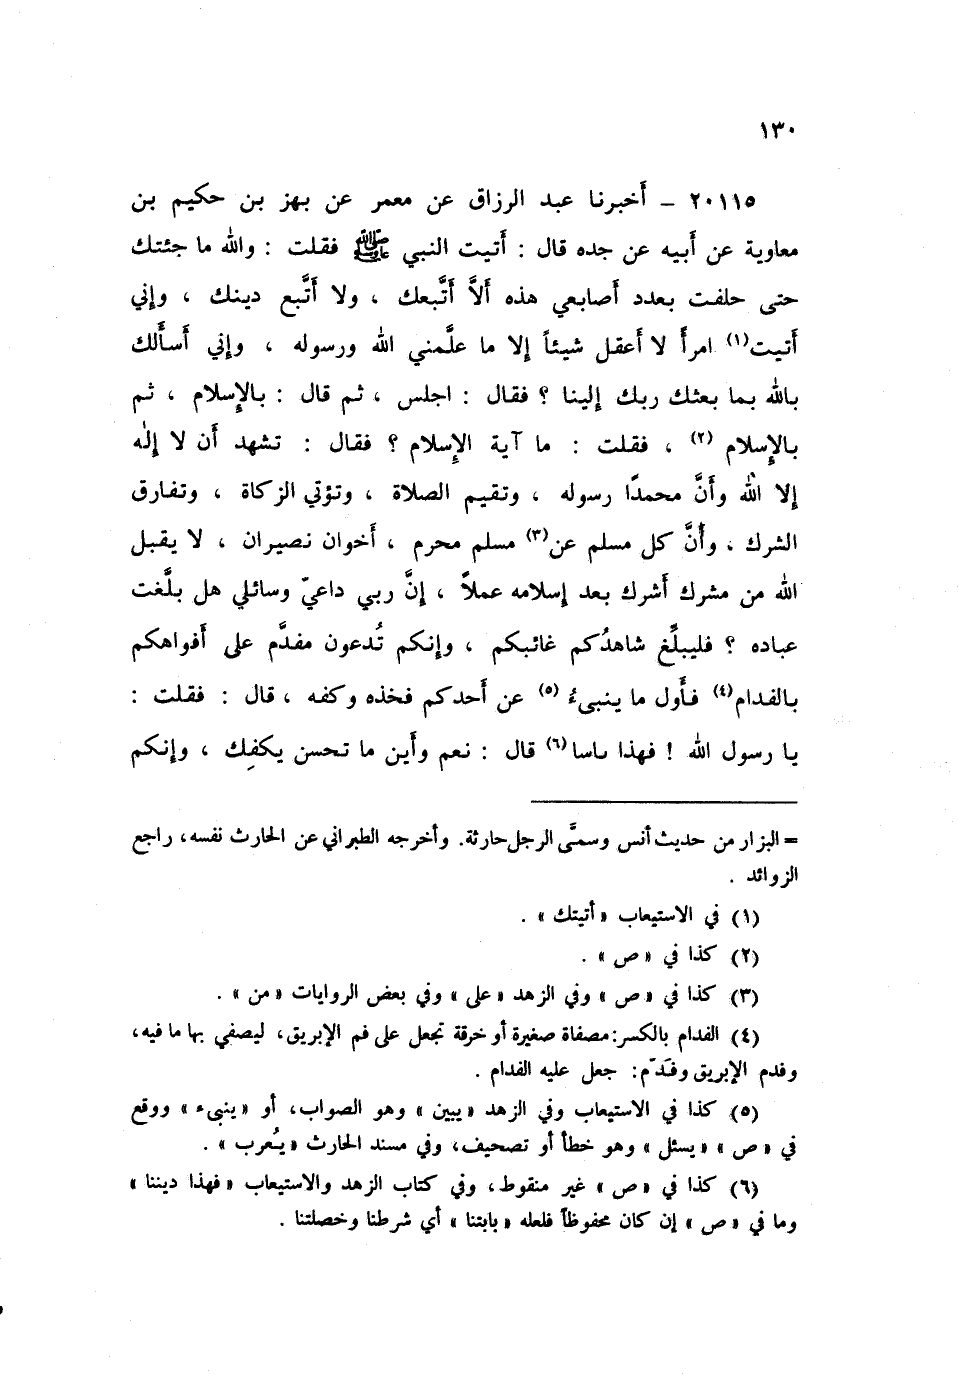 ١٣٠
٢٠١١٥ – أَخبرنا عبد الرزاق عن معمر عن بهز بن حكيم بن
معاوية عن أَبيه عن جده قال : أَتيت النبي ﷺ فقلت : والله ما جئتك
حتى حلفت بعدد أَصابعي هذه أَلاَّ أَتَّبعك ، ولا أَتَّبع دينك ، وإني
أَتيت(١) امرأً لا أَعقل شيئاً إلا ما علَّمني الله ورسوله ، وإني أَسأَلك
بالله بما بعثك ربك إلينا ؟ فقال : اجلس ، ثم قال : بالإسلام ، ثم
بالإسلام (٢) ، فقلت : ما آية الإسلام ؟ فقال : تشهد أَن لا إلٰه
إلا الله وأَنَّ محمدًا رسوله ، وتقيم الصلاة ، وتؤتي الزكاة ، وتفارق
الشرك ، وأَنَّ كل مسلم عن(٣) مسلم محرم ، أَخوان نصيران ، لا يقبل
الله من مشرك أَشرك بعد إسلامه عملاً ، إنَّ ربي داعيّ وسائلي هل بلَّغت
عباده ؟ فليبلِّغ شاهدُكم غائبكم ، وإنكم تُدعون مفدَّم على أَفواهكم
بالفدام(٤) فأَول ما ينبىءُ (٥) عن أَحدكم فخذه وكفه ، قال : فقلت :
يا رسول الله ! فهذا ىاسا(٦) قال : نعم وأَين ما تحسن يكفِك ، وإنكم
= البزار من حديث أنس وسمَّى الرجل حارثة. وأخرجه الطبراني عن الحارث نفسه، راجع
الزوائد .
(١) في الاستيعاب « أتيتك » .
(٢) كذا في « ص » .
(٣) كذا في « ص » وفي الزهد « على » وفي بعض الروايات « من » .
(٤) الفدام بالكسر: مصفاة صغيرة أو خرقة تجعل على فم الإبريق، ليصفي بها ما فيه،
وفدم الإبريق وفدّم : جعل عليه الفدام .
(٥) كذا في الاستيعاب وفي الزهد « يبين » وهو الصواب، أو « ينبىء » ووقع
في « ص » « يسئل » وهو خطأ أو تصحيف، وفي مسند الحارث « يُعرب » .
(٦) كذا في « ص » غير منقوط، وفي كتاب الزهد والاستيعاب « فهذا ديننا »
وما في « ص » إن كان محفوظاً فلعله « بابتنا » أي شرطنا وخصلتنا .